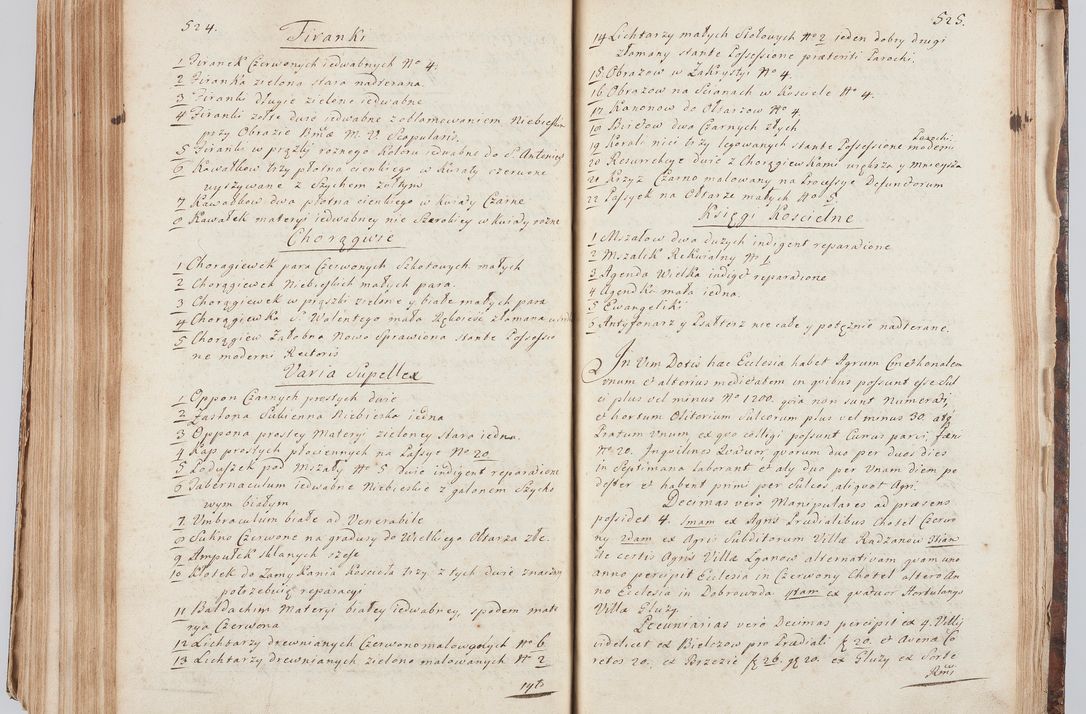 524.
Firanki
1 Firanek Czerwonych iedwabnych Nº 4.
2 Firanka zielona stara nadterana.
3 Firanki długie zielone iedwabne
4 Firanki żołte dwie iedwabne z obłamowaniem Niebieskim
przy Obrazie Bmæ M. V Scapularis.
5 Firanki w prążki roznego koloru iedwabne do S. Antoniego
6 Kawałkow trzy płotna cienkiego w kwiaty czerwone
wyszywane z Szychem żołtym
7 Kawałkow dwa płotna cienkiego w kwiaty Czarne
8 Kawałek materyi iedwabney nie Szerokiey w kwiaty rozne
Chorągwie
1 Chorągiewek para Czerwonych Szkotowych małych
2 Chorągiewek Niebieskich małych para.
3 Chorągiewek w prążki zielone y białe małych para
4 Chorągiewka S. Walentego mała złamana
5 Chorągiew Załobna Nowo Sprawiona stante Possessio
ne moderni Rectoris
Varia Supellex
1 Oppon Czarnych prostych dwie
2 Zasłona Subienna Niebieska iedna
3 Oppona prostey Materyi zieloney stara iedna.
4 Kap prostych płociennych na Passye Nº 20
5 Poduszek pod Mszały Nº 5 dwie indigent reparatione
6 Tabernaculum iedwabne Niebieskie z galonem Szycho
wym białym
7 Umbraculum białe ad Venerabile
8 Sukno Czerwone na gradusy do Wielkiego Ołtarza złe.
9 Ampułek sklanych sześć
10 Kłotek do Zamykania Kościoła trzy. z tych dwie znaczney
potrzebuię reparacyi
11 Baldachim Materyi białey iedwabney, spodem mate
rya Czerwona
12 Lichtarzy drewnianych Czerwono malowanych Nº 6
13 Lichtarzy drewnianych zielono malowanych Nº 2
14to
525.
14 Lichtarzy małych Stołowych Nº 2 ieden dobry drugi
złamany stante Possessione præteriti Parochi.
15 Obrazow w Zakrystyi Nº 4.
16 Obrazow na Scianach w Kosciele Nº 4.
17 Kanonow do Ołtarzow Nº 4.
18 Biretow dwa Czarnych złych
19 Korali nici trzy legowanych stante Possessione moderni Parochi
20 Resurekcye dwie z Chorągiewkami większa y mnieysza
21 Krzyż Czarno malowany na Processye Defunctorum
22 Passyek na Ołtarze małych Nº 5
Księgi Koscielne
1 Mszałow dwa duzych indigent reparatione
2 Mszalik Rekwialny Nº 1
3 Agenda Wielka indiget reparatione
4 Agendka mała iedna.
5 Ewangeliki
6 Antyfonarz y Psałterz nie całe y potężnie nadterane.
In Vim Dotis hæc Ecclesia habet Agrum Cmethonalem
unum et alterius medietatem in quibus possunt esse Sul
ci plus vel minus Nº 1200. quia non sunt Numerati,
et hortum Olitorium Sulcorum plus vel minus 30. atq
Pratum Unum, ex quo colligi possunt Currus parvi fæni
Nº 20. Inquilinos Quatuor, quorum duo per duos dies
in Septimana laborant et aly duo per Unam diem pe
dester et habent primi per Sulcos aliquot Agri.
Decimas verò Manipulares ad præsens
possidet 4. 1mam ex Agris Prædialibus Chotel Czerwo
ny 2dam ex Agris Subditorum Villæ Radzanow 3tiam
de certis Agris Villæ alternativam quam uno
anno percipit Ecclesia in Czerwony Chotel altero An
no Ecclesia in Dobrowoda 4tam ex quatuor Hortulanys
Villæ Gluzy.
Pecuniarias verò Decimas percipit ex 9. Villy
videlicet ex Bielczow pro Prædiali f 20. et Avena Co
retos 20. ex Brzezie f 26. g 20. ex Gluzy ex Sorte